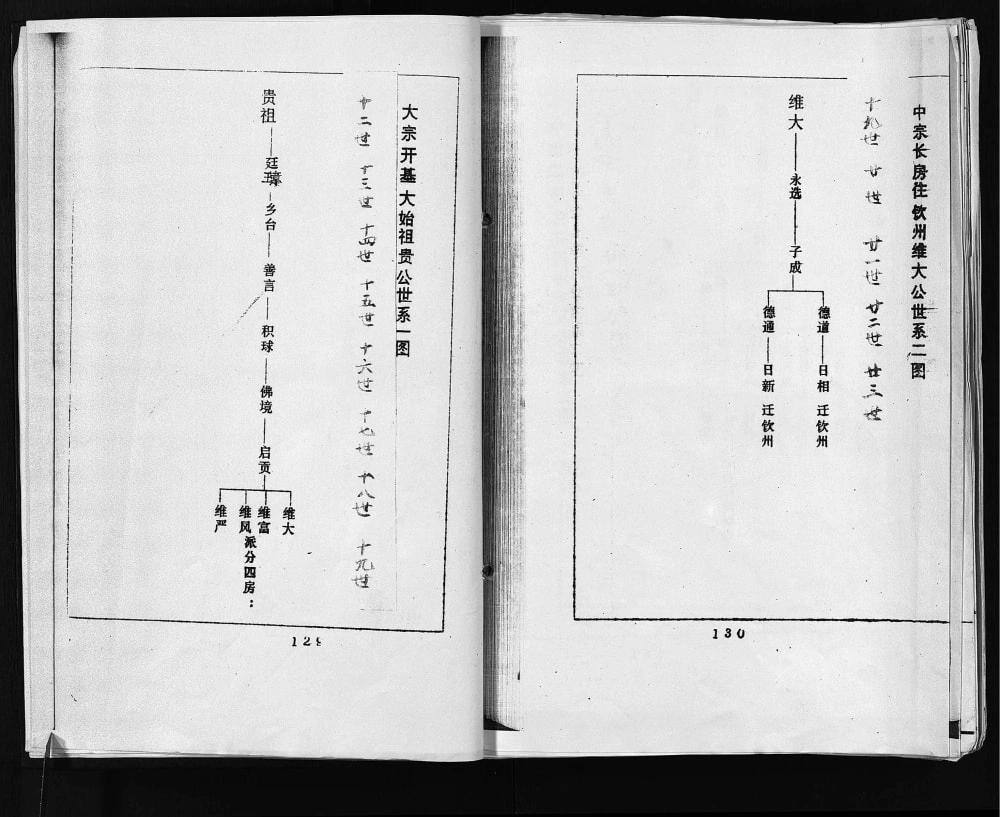 大宗开基大始祖贵公世系一图
十二世 十三世 十四世 十五世 十六世 十七世 十八世 十九世
贵祖
乡台
善言
积球
佛境
启贡
维大
维富
维风派分四房：
维严
129
中宗长房住钦州维大公世系二图
十九世 廿世 廿一世 廿二世 廿三世
维大
永选
子成
德道
日相 迁钦州
德通
日新 迁钦州
130